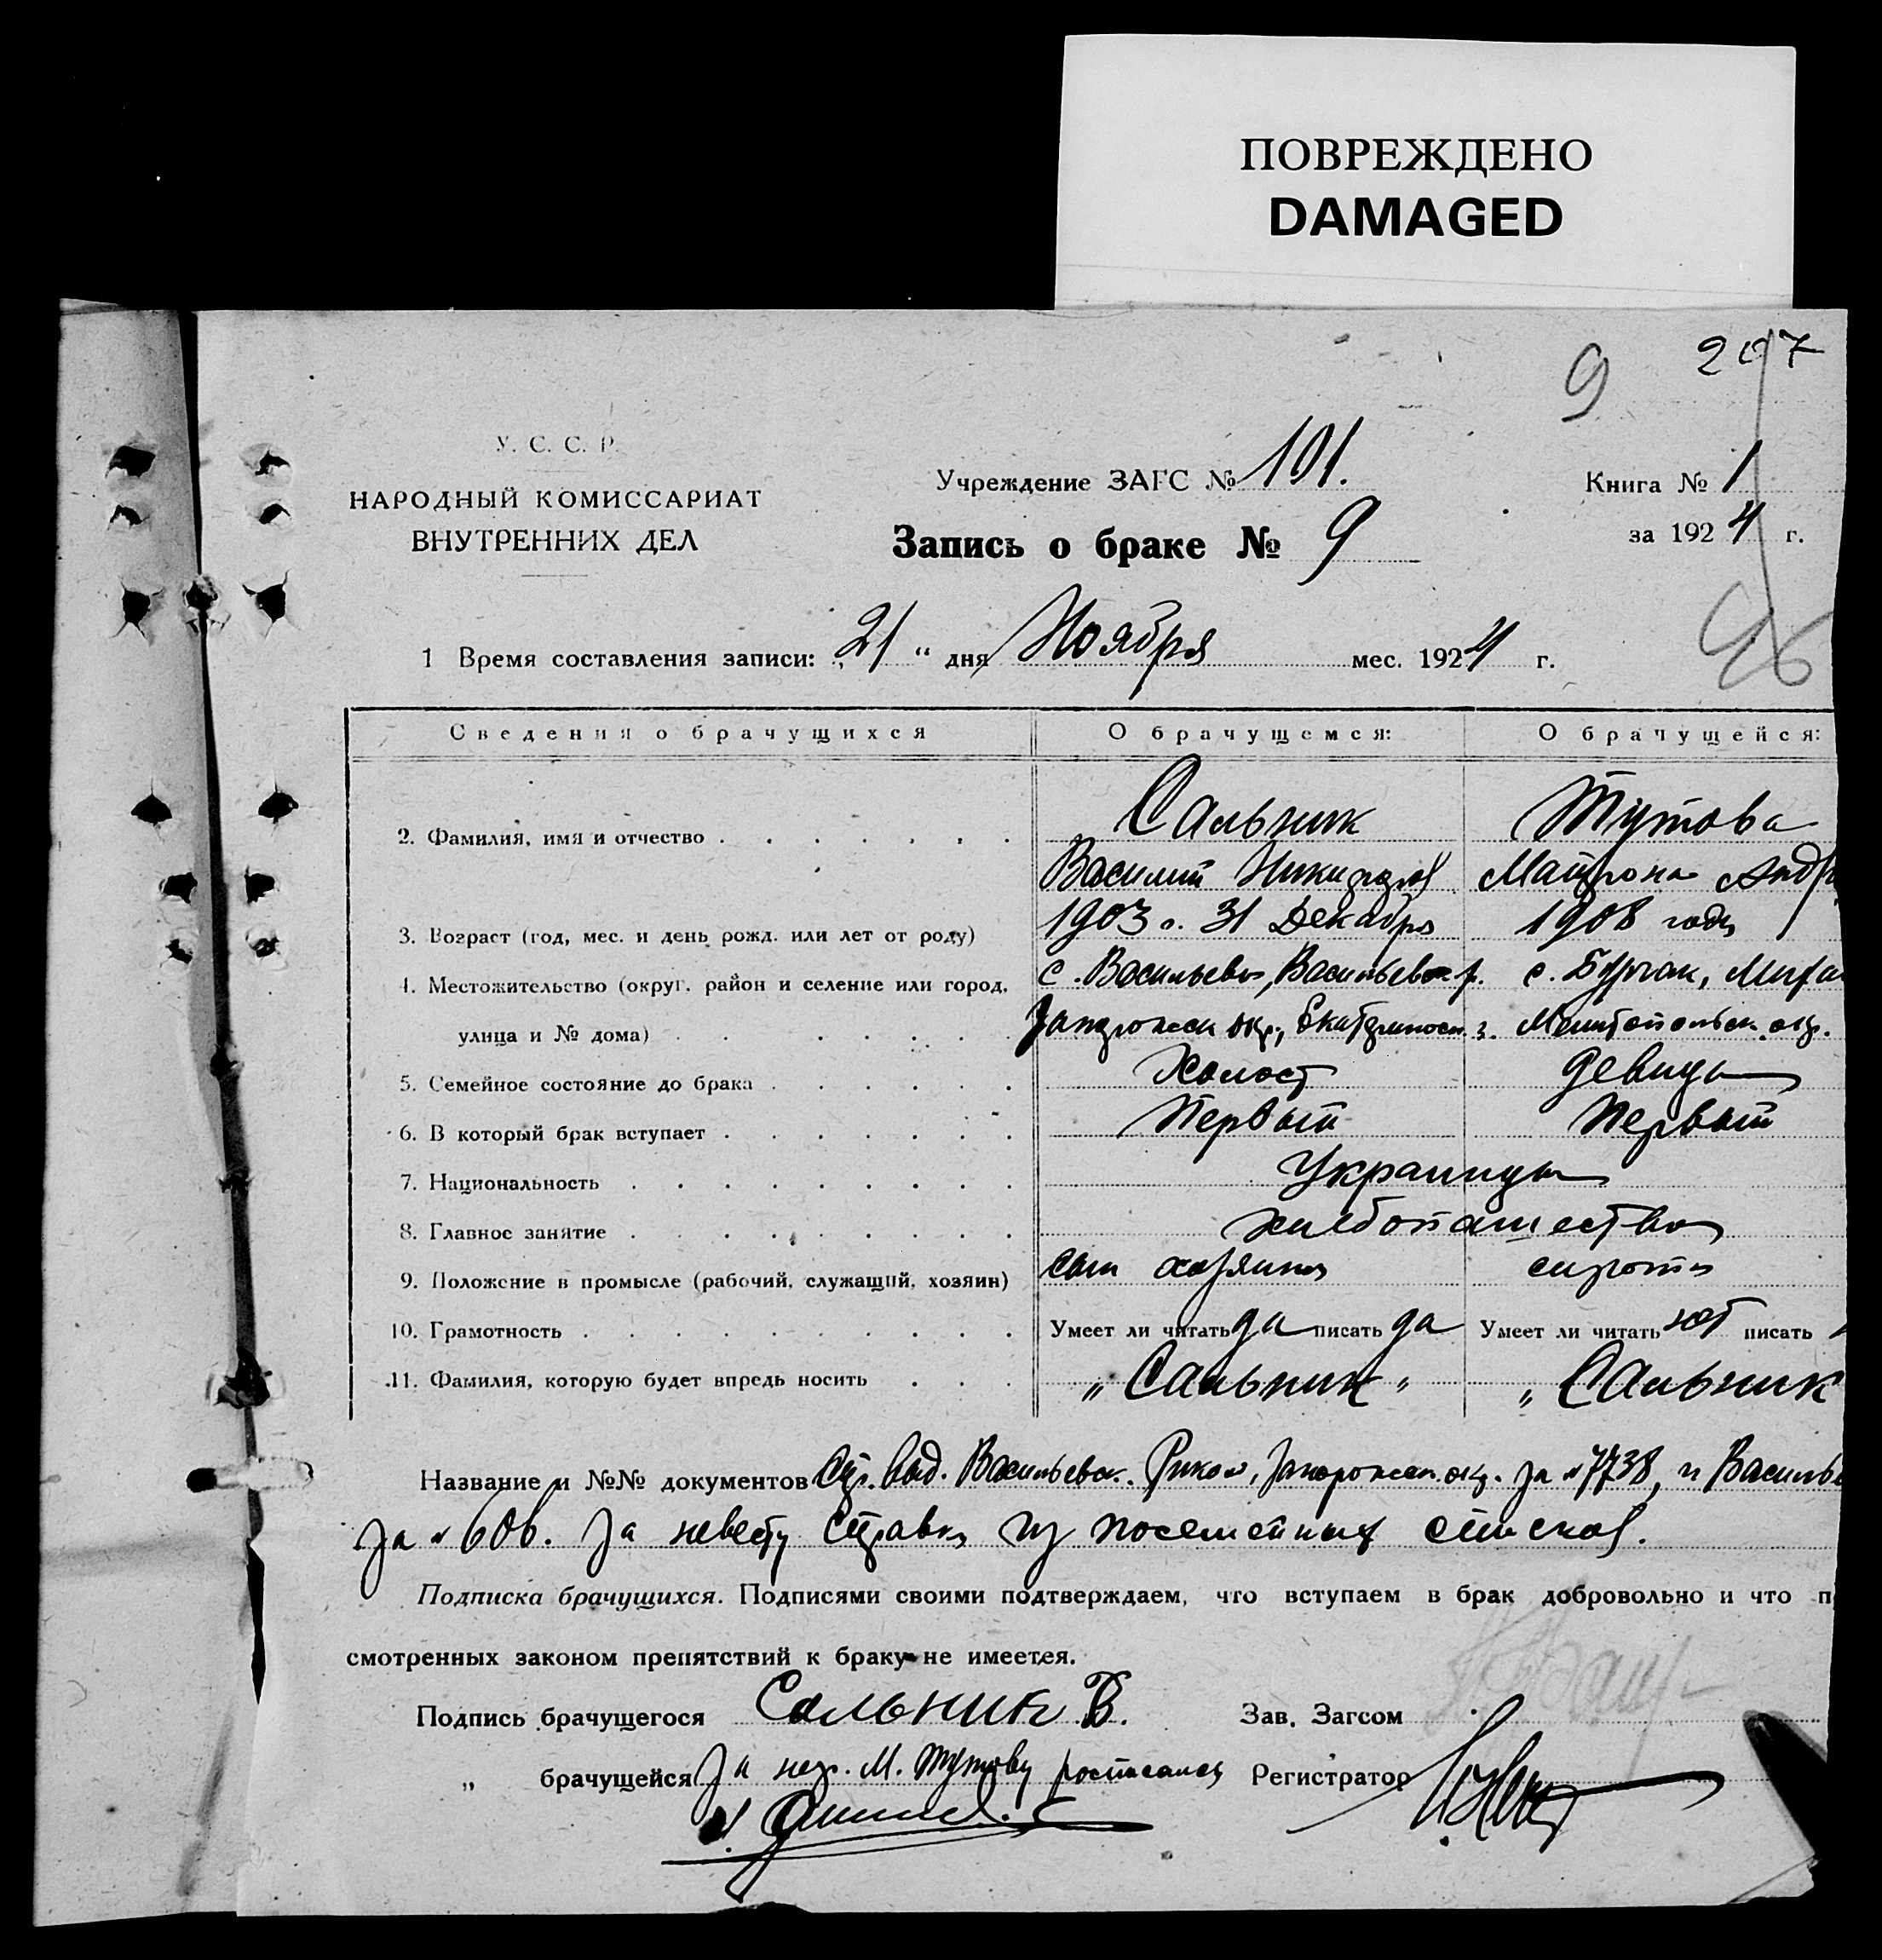 ПОВРЕЖДЕНО
DAMAGED
9 207
У. С. С. Р.
НАРОДНЫЙ КОМИССАРИАТ
ВНУТРЕННИХ ДЕЛ
Учреждение ЗАГС № 101.
Книга № 1
за 1924 г.
Запись о браке № 9
46
1 Время составления записи: „21“ дня Ноября мес. 1924 г.
Сведения о брачущихся О брачущемся: О брачущейся:
2. Фамилия, имя и отчество Сальник Тутова
Василий Никифор Матрона Андр
3. Возраст (год, мес. и день рожд. или лет от роду) 1903 г. 31 Декабря 1908 года
4. Местожительство (округ. район и селение или город, с. Васильевка, Васильевск. р. с. Бурчак,
улица и № дома) Запорожск окр., Екатериносл. г. Мелитопольск. окр.
5. Семейное состояние до брака Холост девица
6. В который брак вступает Первый Первый
7. Национальность Украинцы
8. Главное занятие хлебопашество
9. Положение в промысле (рабочий, служащий, хозяин) сын хозяина сирота
10. Грамотность Умеет ли читать да писать да Умеет ли читать нет писать
11. Фамилия, которую будет впредь носить „Сальник„ „Сальник
Название и №№ документов выд. Васильевск. Риком, Запорожск. окр. за №7738, и Василье
за № 606. За невесту справка из посемейных списков.
Подписка брачущихся. Подписями своими подтверждаем, что вступаем в брак добровольно и что п
смотренных законом препятствий к браку не имеется.
Подпись брачущегося Сальник В. Зав. Загсом
„ брачущейся За нег. М. Тутову росписался Регистратор